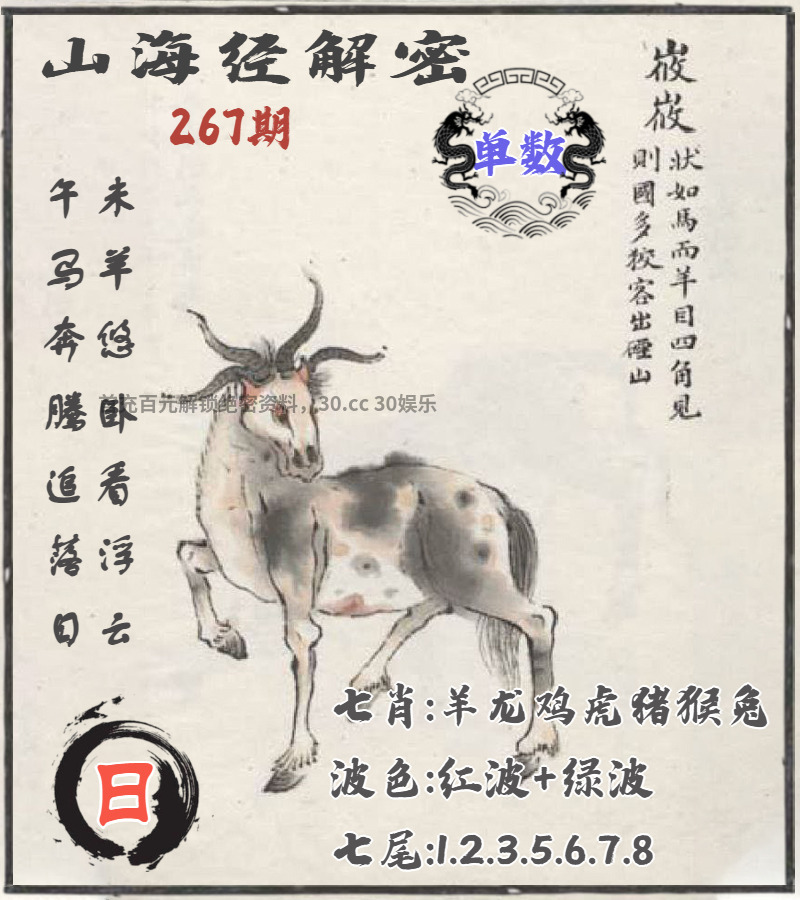 山海经解密
267期
单数
峳峳
狀如馬而羊目四角見
則國多狡客出䃌山
未羊悠卧看浮云
午马奔腾追落日
首充百元解锁绝密资料，30.cc 30娱乐
日
七肖:羊龙鸡虎猪猴兔
波色:红波+绿波
七尾:1.2.3.5.6.7.8